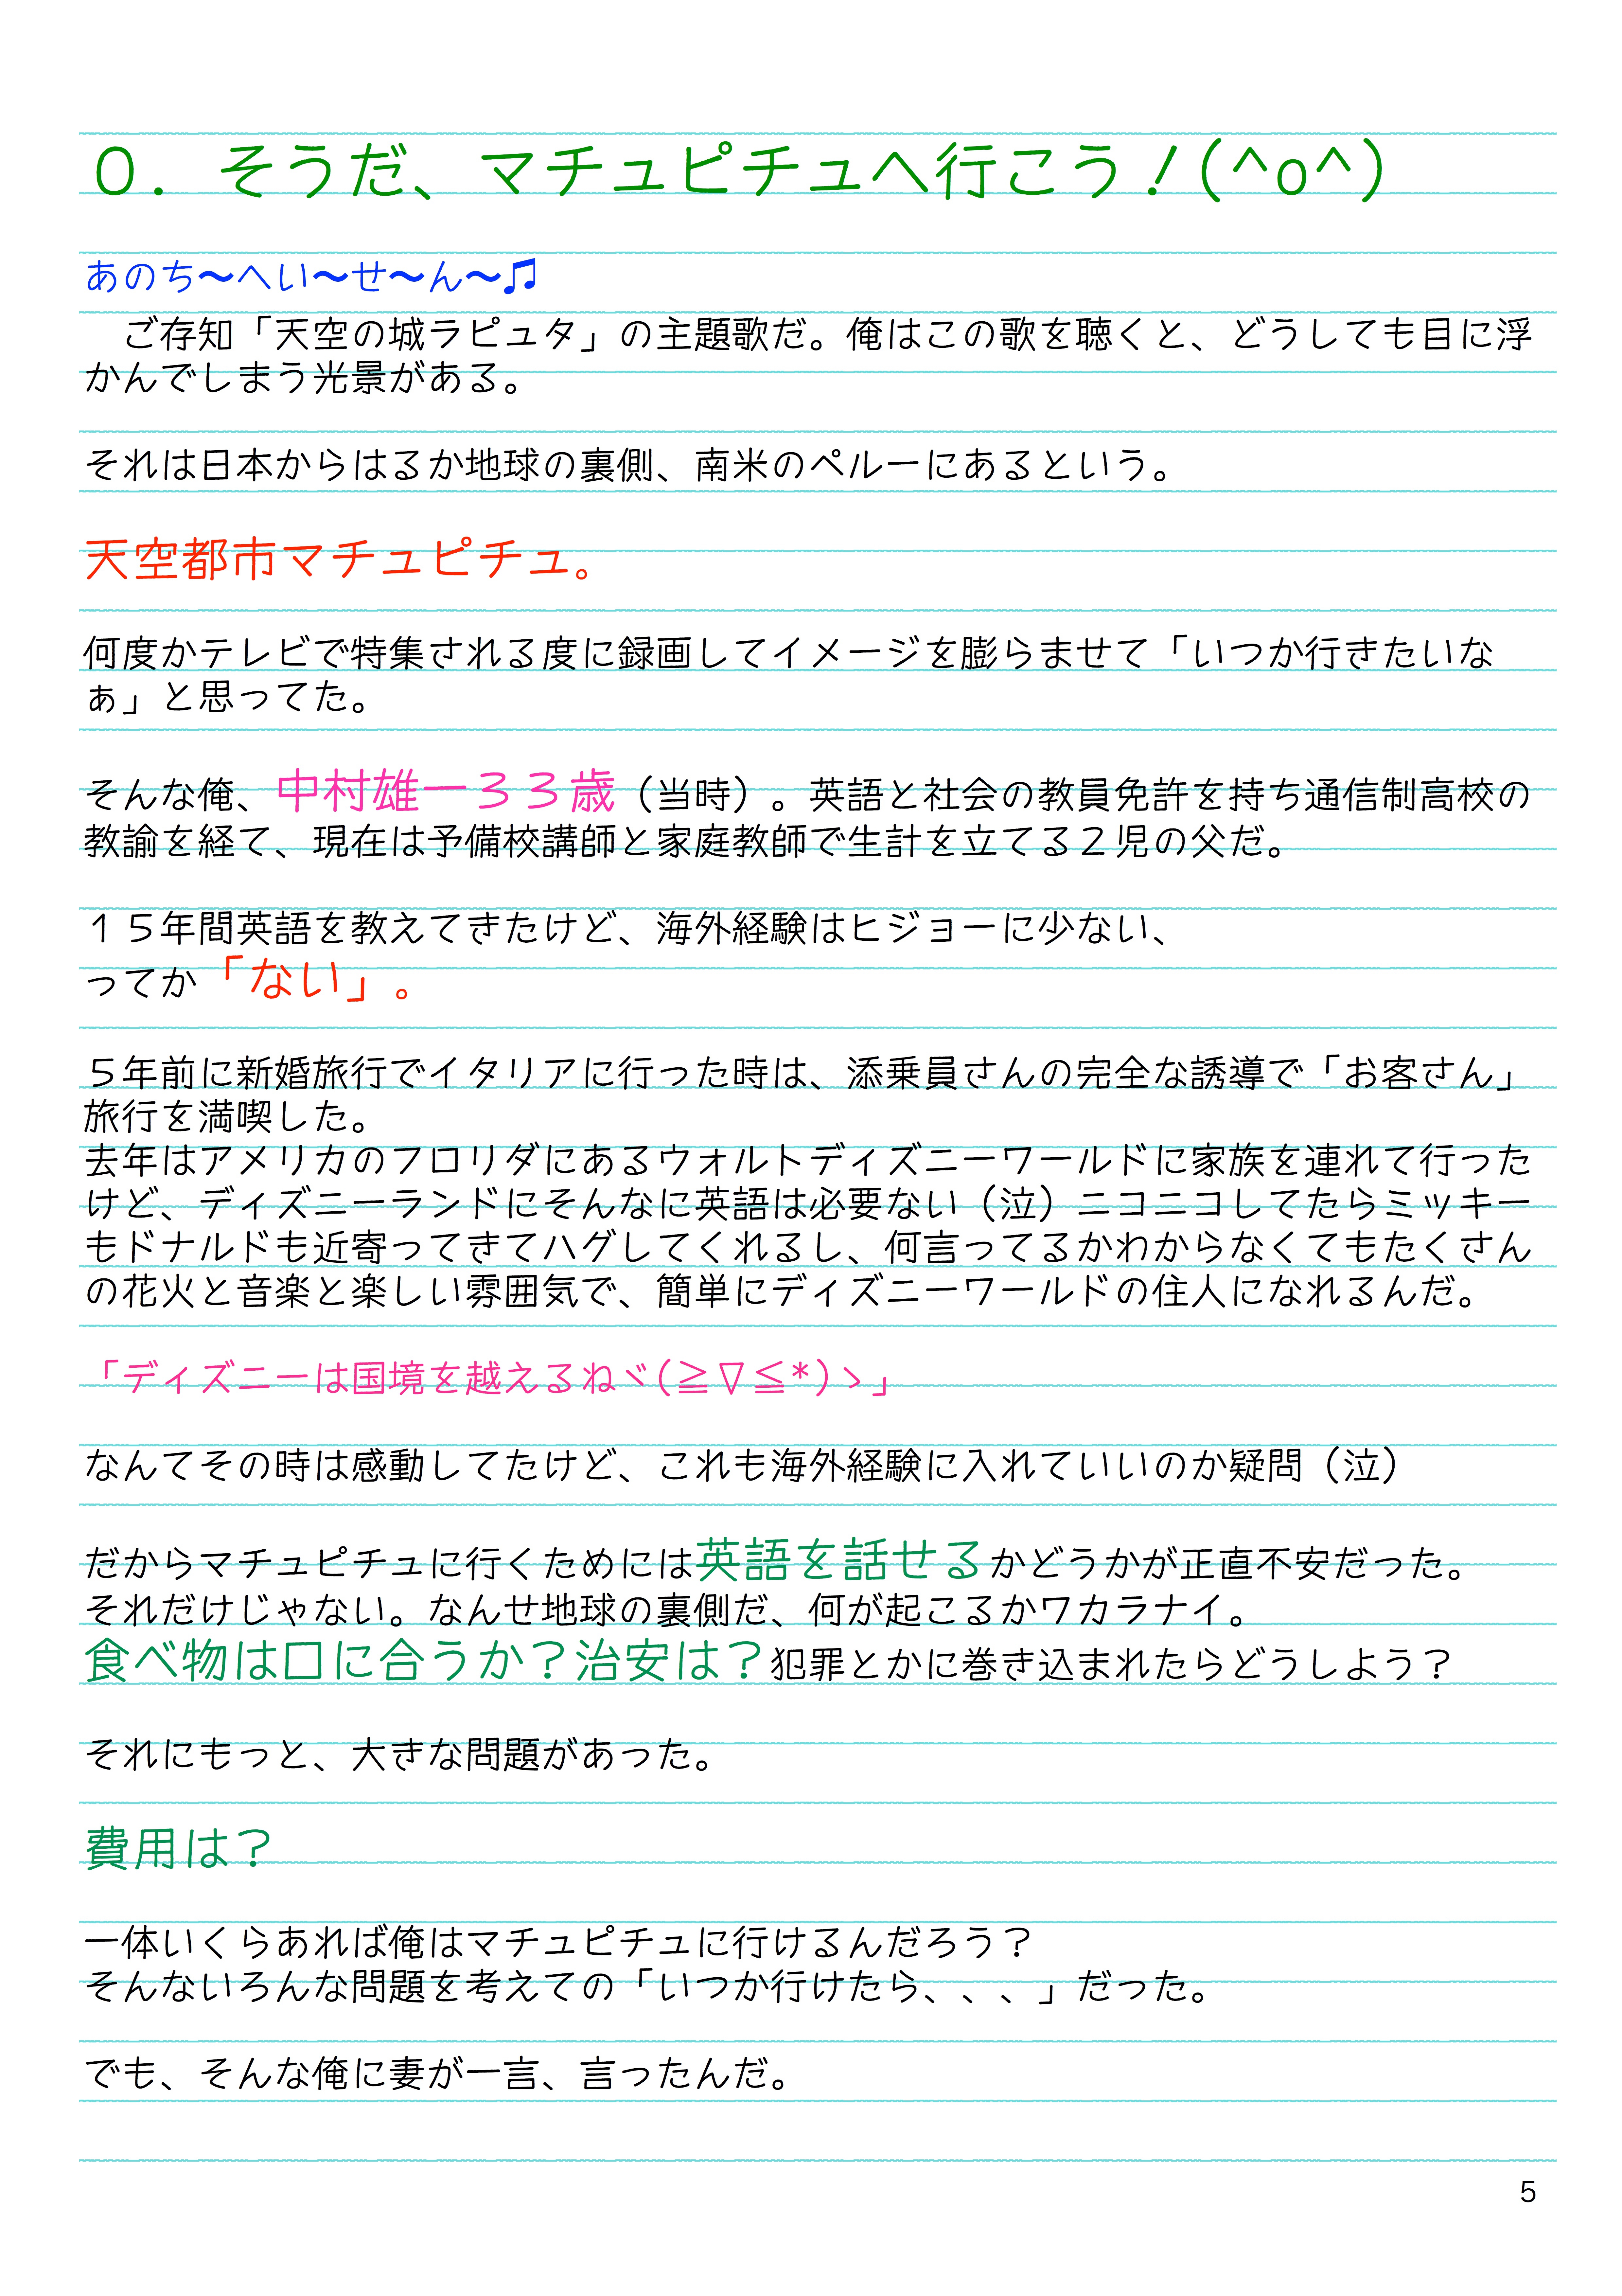 ０．　そうだ、マチュピチュへ行こう！(^o^)
あのち〜へい〜せ〜ん〜♫
　ご存知「天空の城ラピュタ」の主題歌だ。俺はこの歌を聴くと、どうしても目に浮
かんでしまう光景がある。
それは日本からはるか地球の裏側、南米のペルーにあるという。
天空都市マチュピチュ。
何度かテレビで特集される度に録画してイメージを膨らませて「いつか行きたいな
ぁ」と思ってた。
そんな俺、中村雄一３３歳（当時）。英語と社会の教員免許を持ち通信制高校の
教諭を経て、現在は予備校講師と家庭教師で生計を立てる２児の父だ。
１５年間英語を教えてきたけど、海外経験はヒジョーに少ない、
ってか「ない」。
５年前に新婚旅行でイタリアに行った時は、添乗員さんの完全な誘導で「お客さん」
旅行を満喫した。
去年はアメリカのフロリダにあるウォルトディズニーワールドに家族を連れて行った
けど、ディズニーランドにそんなに英語は必要ない（泣）ニコニコしてたらミッキー
もドナルドも近寄ってきてハグしてくれるし、何言ってるかわからなくてもたくさん
の花火と音楽と楽しい雰囲気で、簡単にディズニーワールドの住人になれるんだ。
「ディズニーは国境を越えるねヾ(≧∇≦*)ゝ」
なんてその時は感動してたけど、これも海外経験に入れていいのか疑問（泣）
だからマチュピチュに行くためには英語を話せるかどうかが正直不安だった。
それだけじゃない。なんせ地球の裏側だ、何が起こるかワカラナイ。
食べ物は口に合うか？治安は？犯罪とかに巻き込まれたらどうしよう？
それにもっと、大きな問題があった。
費用は？
一体いくらあれば俺はマチュピチュに行けるんだろう？
そんないろんな問題を考えての「いつか行けたら、、、」だった。
でも、そんな俺に妻が一言、言ったんだ。
5